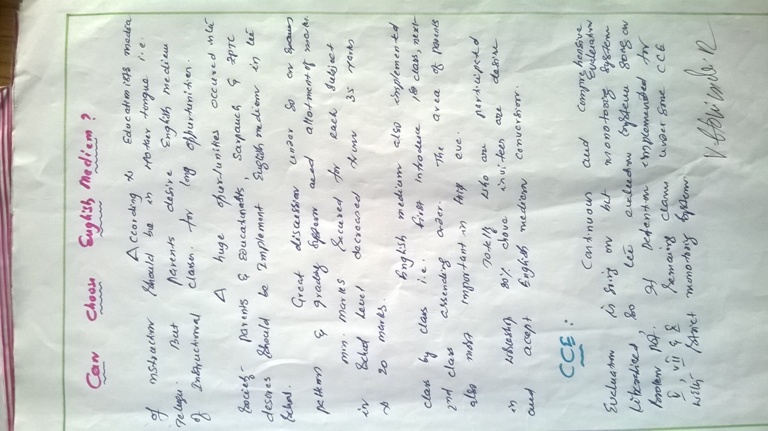 Can Choose English Medium?
According to Educationists media
of instruction should be in Mother tongue i.e.
Telugu. But Parents desire English medium
of Instructional classes. for long opportunities.
A huge oppurtunities occured in
Society- parents & Educationalists, Sarpanch &
desires should be Implement English medium in
School.
Great discussion under
pattern & grading System and allotment of marks.
min. marks Secured for each Subject
in School level decreased from 35 marks
to 20 marks.
English medium also implemented
class by class i.e. first introduce 1st class, next
2nd class assending order. The area of parents
also most important in this
Totally who are participated
in 80% above invitees are desire
and acept English medium conversion.
CCE:
Continuous and comprehensive
Evaluation
Evaluation is going on but monotoring System
Liberalised, so evaluation System going on
If Detention implemented for
VII & Remaining classes under some CCE
with strict monotoring System